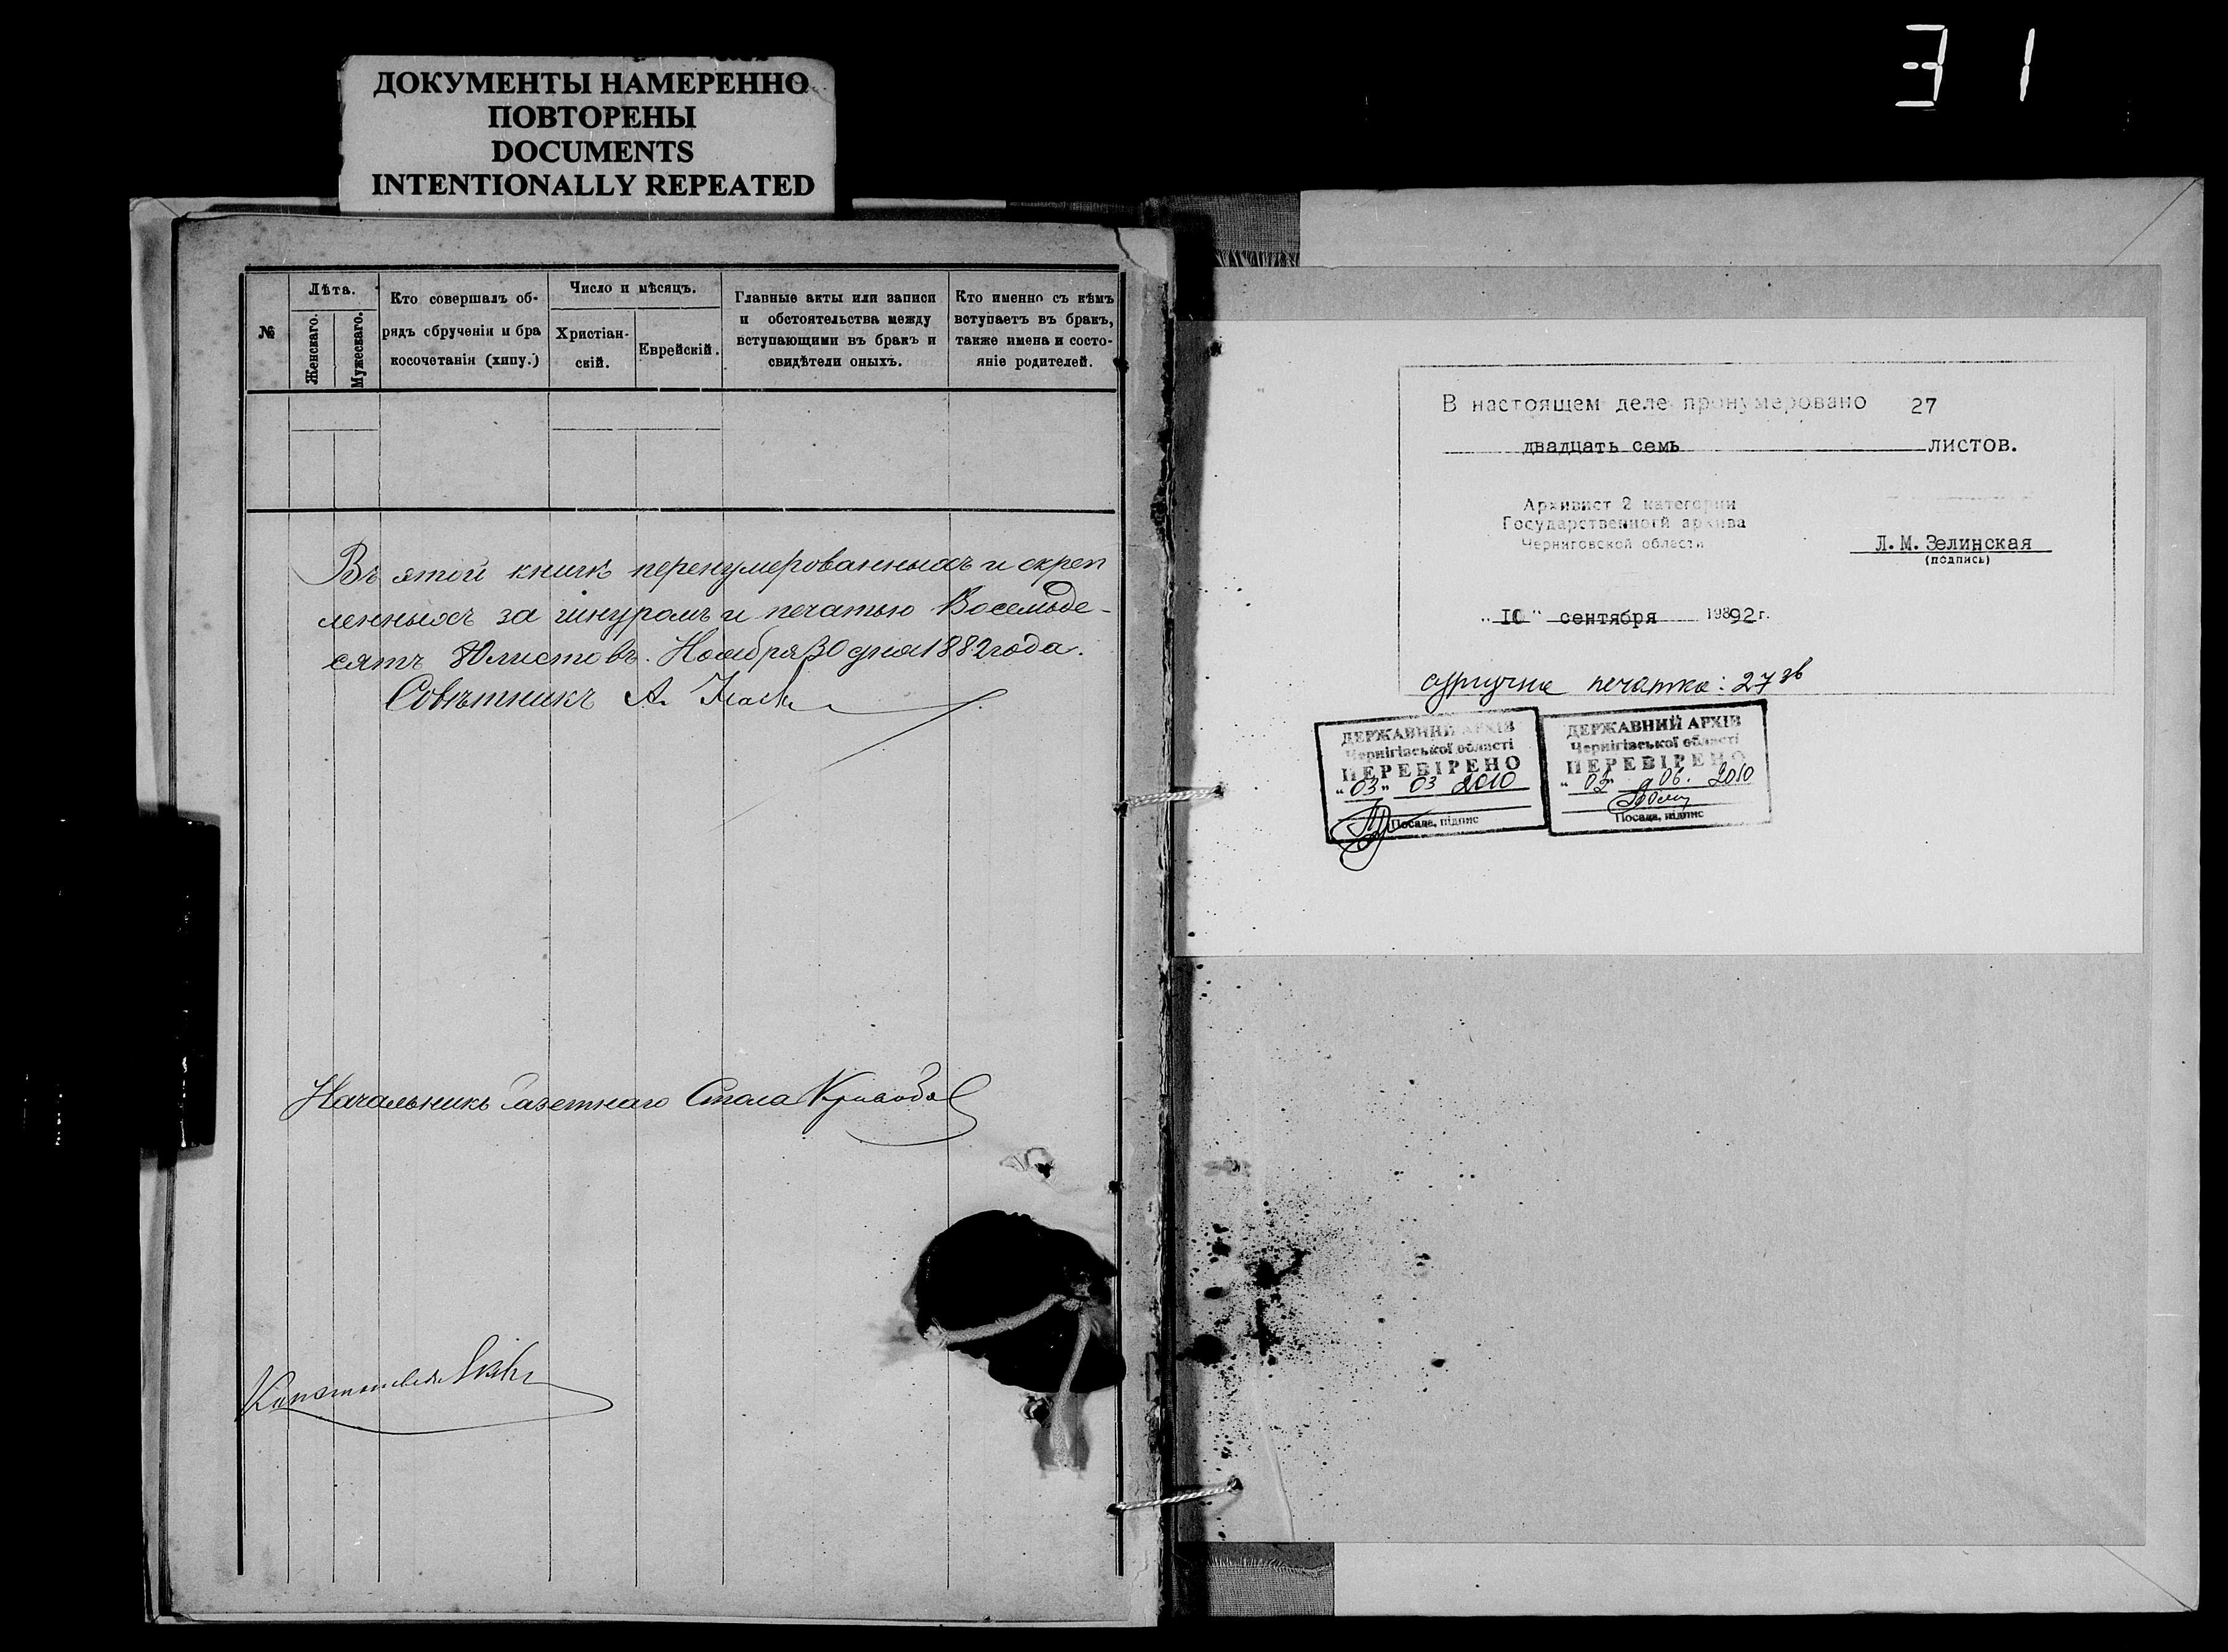 31
ДОКУМЕНТЫ НАМЕРЕННО
ПОВТОРЕНЫ
DOCUMENTS
INTENTIONALLY REPEATED
№
Лѣта.
Женскаго.
Мужескаго.
Кто совершалъ об-
рядъ сбрученія и бра
косочетанія (хипу.)
Число и мѣсяцъ.
Христіан-
скій.
Еврейскій.
Главные акты или записи
и обстоятельства между
вступающими въ бракъ и
свидѣтели оныхъ.
Кто именно съ кѣмъ
вступаетъ въ бракъ,
также имена и состо-
яніе родителей.
Въ этой книгѣ перенумерованныхъ и скреп
ленныхъ за шнуромъ и печатью Восемьде-
сятъ 80 листовъ. Ноября 30 дня 1882 года.
Совѣтникъ А.
Начальникъ Газетнаго Стола
В настоящем деле пронумеровано 27
двадцать семь листов.
Архивист 2 категории
Государственногй архива
Черниговской области
Л.М.Зелинская
(подпись)
"10" сентября 19892г.
сургучна печатка: 27 зв
ДЕРЖАВНИЙ АРХІВ
Чернігівської області
ПЕРЕВІРЕНО
"03" 03 2010
Посада, підпис
ДЕРЖАВНИЙ АРХІВ
Чернігівської області
ПЕРЕВІРЕНО
06. 2010
Посада, підпис